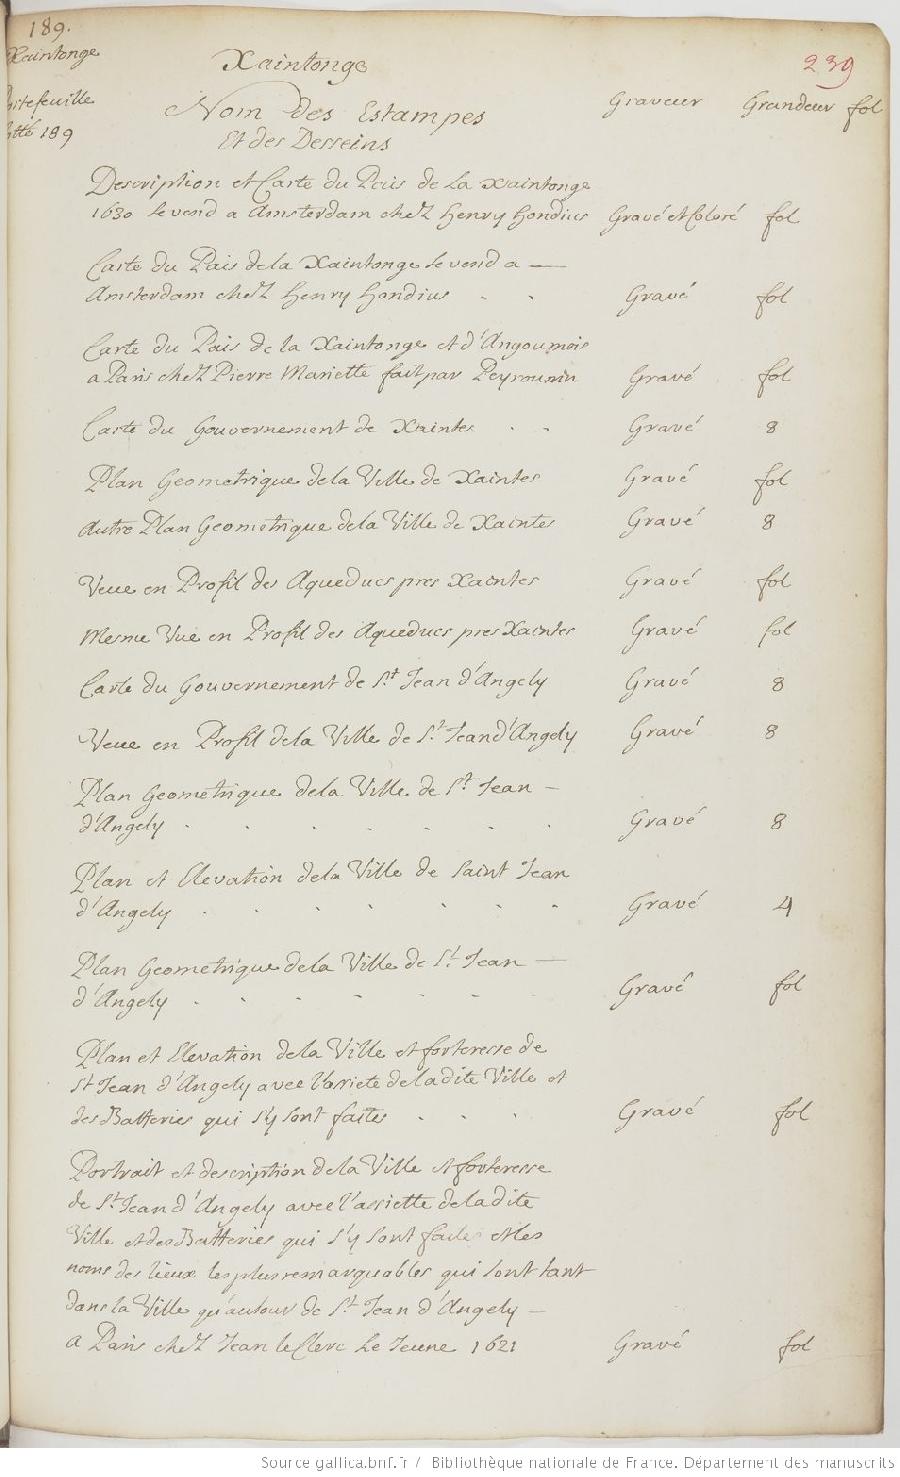 189.
Xaintonge
Xaintonge
239
Nom des Estampes
Et des Desseins
Graveur Grandeur fol
189
Description et Carte du Païs de La Xaintonge
1630 se vend a Amsterdam chez Henry Hondius Gravé et Coloré fol
Carte du Païs de la Xaintonge se vend a —
Amsterdam chez Henry Hondius . . Gravé fol
Carte du Païs de la Xaintonge et d'Angoumois
a Paris chez Pierre Mariette fait par Peyrounin Gravé fol
Carte du Gouvernement de Xaintes . . Gravé 8
Plan Geometrique de la Ville de Xaintes Gravé fol
Autre Plan Geometrique de la Ville de Xaintes Gravé 8
Veue en Profil des Aqueducs pres Xaintes Gravé fol
Mesme Vue en Profil des Aqueducs pres Xaintes Gravé fol
Carte du Gouvernement de St. Jean d'Angely Gravé 8
Veue en Profil de la Ville de St. Jean d'Angely Gravé 8
Plan Geometrique de la Ville de St. Jean —
d'Angely . . . . . . . Gravé 8
Plan et Elevation de la Ville de Saint Jean
d'Angely . . . . . . . Gravé 4
Plan Geometrique de la Ville de St. Jean —
d'Angely . . . . . . Gravé fol
Plan et Elevation de la Ville et forteresse de
St Jean d'Angely avec l'assiete de la dite Ville et
des Batteries qui s'y sont faites . . . Gravé fol
Portrait et description de la Ville et forteresse
de St. Jean d'Angely avec l'assiette de la dite
Ville et des Batteries qui s'y sont faites et les
noms des lieux les plus remarquables qui sont tant
dans la Ville qu'autour de St. Jean d'Angely —
a Paris chez Jean le Clerc le Jeune 1621 Gravé fol
Source gallica.bnf.fr / Bibliothèque nationale de France. Département des manuscrits